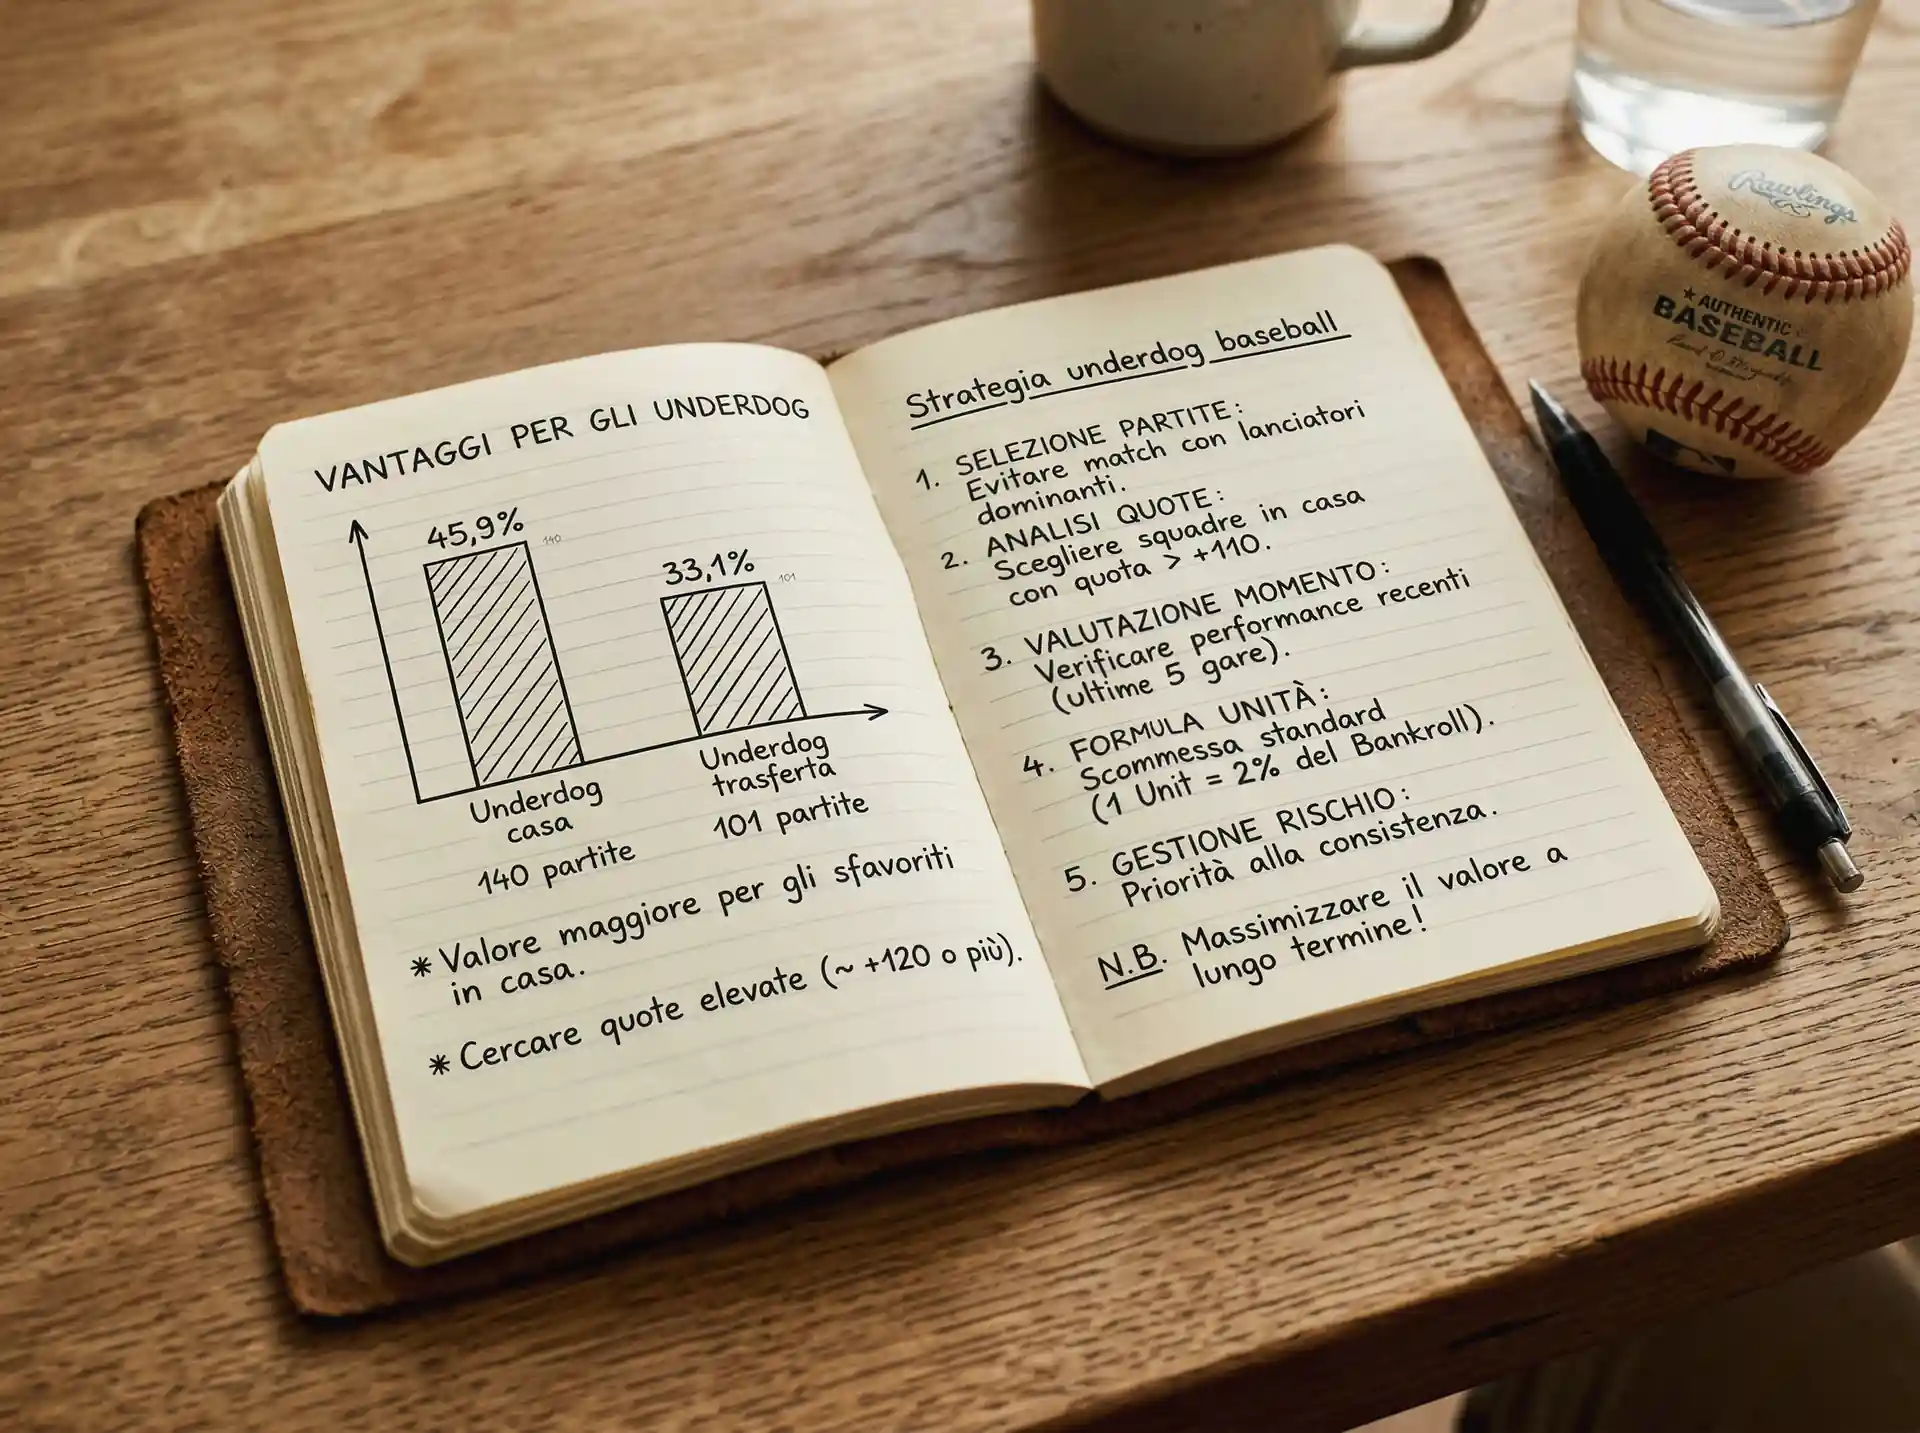 VANTAGGI PER GLI UNDERDOG
45,9%
140
33,1%
101
Underdog
casa
140 partite
Underdog
trasferta
101 partite
* Valore maggiore per gli sfavoriti
in casa.
* Cercare quote elevate (~ +120 o più).
Strategia underdog baseball
1. SELEZIONE PARTITE:
Evitare match con lanciatori
dominanti.
2. ANALISI QUOTE:
Scegliere squadre in casa
con quota > +110.
3. VALUTAZIONE MOMENTO:
Verificare performance recenti
(ultime 5 gare).
4. FORMULA UNITÀ:
Scommessa standard
(1 Unit = 2% del Bankroll).
5. GESTIONE RISCHIO:
Priorità alla consistenza.
N.B. Massimizzare il valore a
lungo termine!
Rawlings
★ AUTHENTIC
BASEBALL